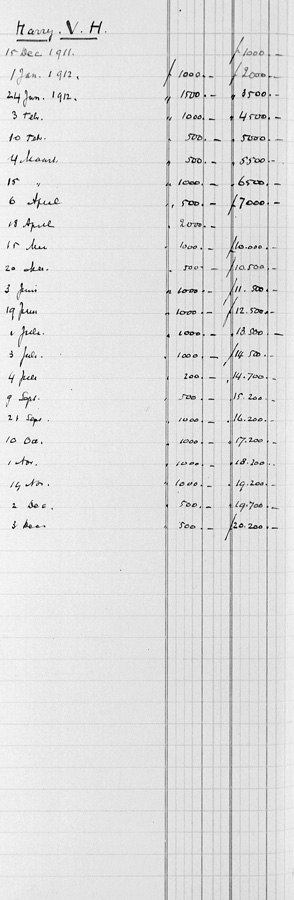 Harry. V. H.
15 Dec 1911. ƒ 1000.-
1 Jan. 1912. ƒ 1000.- ƒ 2000.-
24 Jan. 1912. " 1500.- " 3500.-
3 Feb. " 1000.- " 4500.-
10 Feb. " 500.- " 5000.-
4 Maart " 500.- " 5500.-
15 " " 1000.- " 6500.-
6 April " 500.- ƒ 7000.-
18 April 2000.-
15 Mei 1000.- ƒ 10.000.-
20 Mei 500.- ƒ 10.500.-
3 Juni " 1000.- ƒ 11.500.-
19 Juni " 1000.- ƒ 12.500.-
1 Juli. " 1000.- " 13.500.-
3 Juli. " 1000.- ƒ 14.500.-
4 Juli " 200.- " 14.700.-
9 Sept. " 500.- " 15.200.-
21 Sept. " 1000.- " 16.200.-
10 Oct. " 1000.- " 17.200.-
1 Nov. " 1000.- " 18.200.-
14 Nov. " 1000.- " 19.200.-
2 Dec. " 500.- " 19.700.-
3 " 500.- ƒ 20.200.-